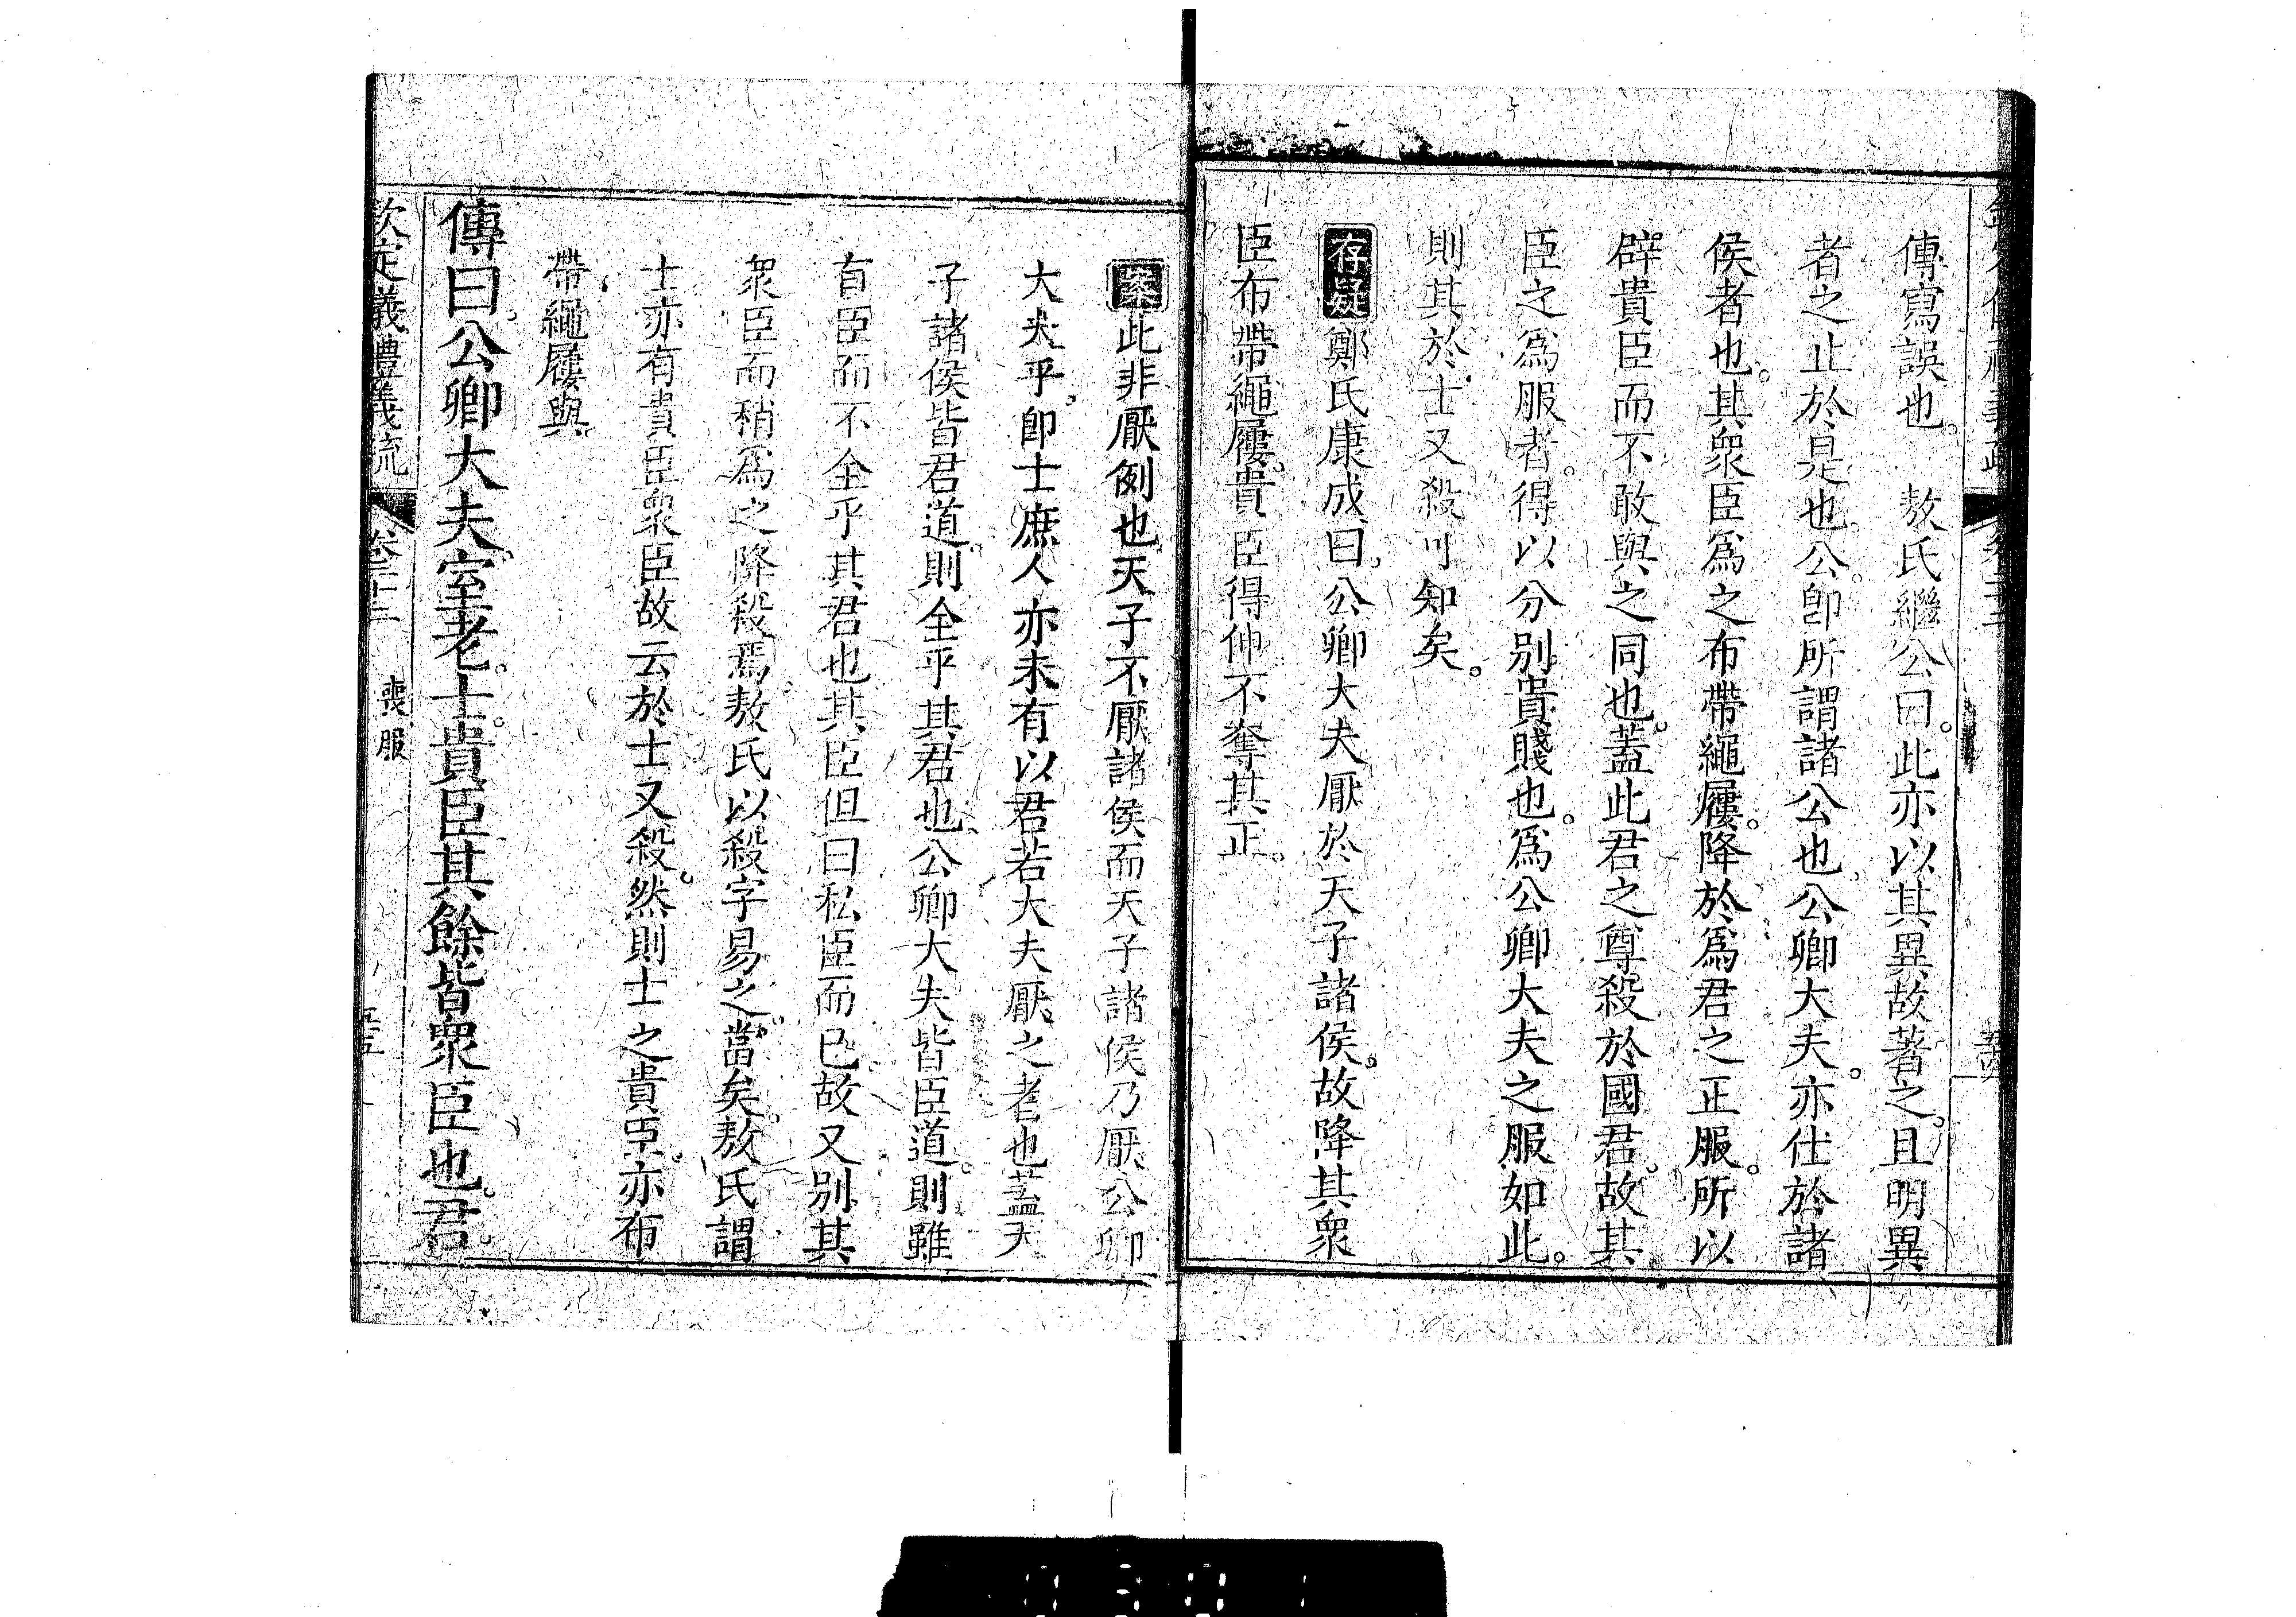 傳寫誤也。 敖氏繼公曰。此亦以其異故著之。且明異
者之止於是也。公卽所謂諸公也。公卿大夫。亦仕於諸
侯者也。其衆臣爲之布帶繩屨。降於爲君之正服。所以
辟貴臣而不敢與之同也。蓋此君之尊。殺於國君。故其
臣之爲服者。得以分別貴賤也。爲公卿大夫之服如此。
則其於士又殺可知矣。
存疑鄭氏康成曰。公卿大夫厭於天子諸侯。故降其衆
臣布帶繩屨。貴臣得伸不奪其正。
案此非厭例也天子不厭諸侯而天子諸侯乃厭公卿
大夫乎。卽士庶人亦未有以君若大夫厭之者也蓋天
子諸侯皆君道。則全乎其君也。公卿大夫皆臣道。則雖
有臣而不全乎其君也其臣但曰私臣而已故又別其
衆臣而稍爲之降殺焉敖氏以殺字易之。當矣。敖氏謂
士亦有貴臣衆臣故云於士又殺。然則士之貴臣。亦布
帶繩屨與
傳曰。公卿大夫。室老。士。貴臣其餘皆衆臣也。君。
欽定儀禮義疏 卷二十二 喪服 五五